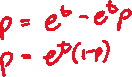 p = e^b - e^b p
p = e^b (1-p)